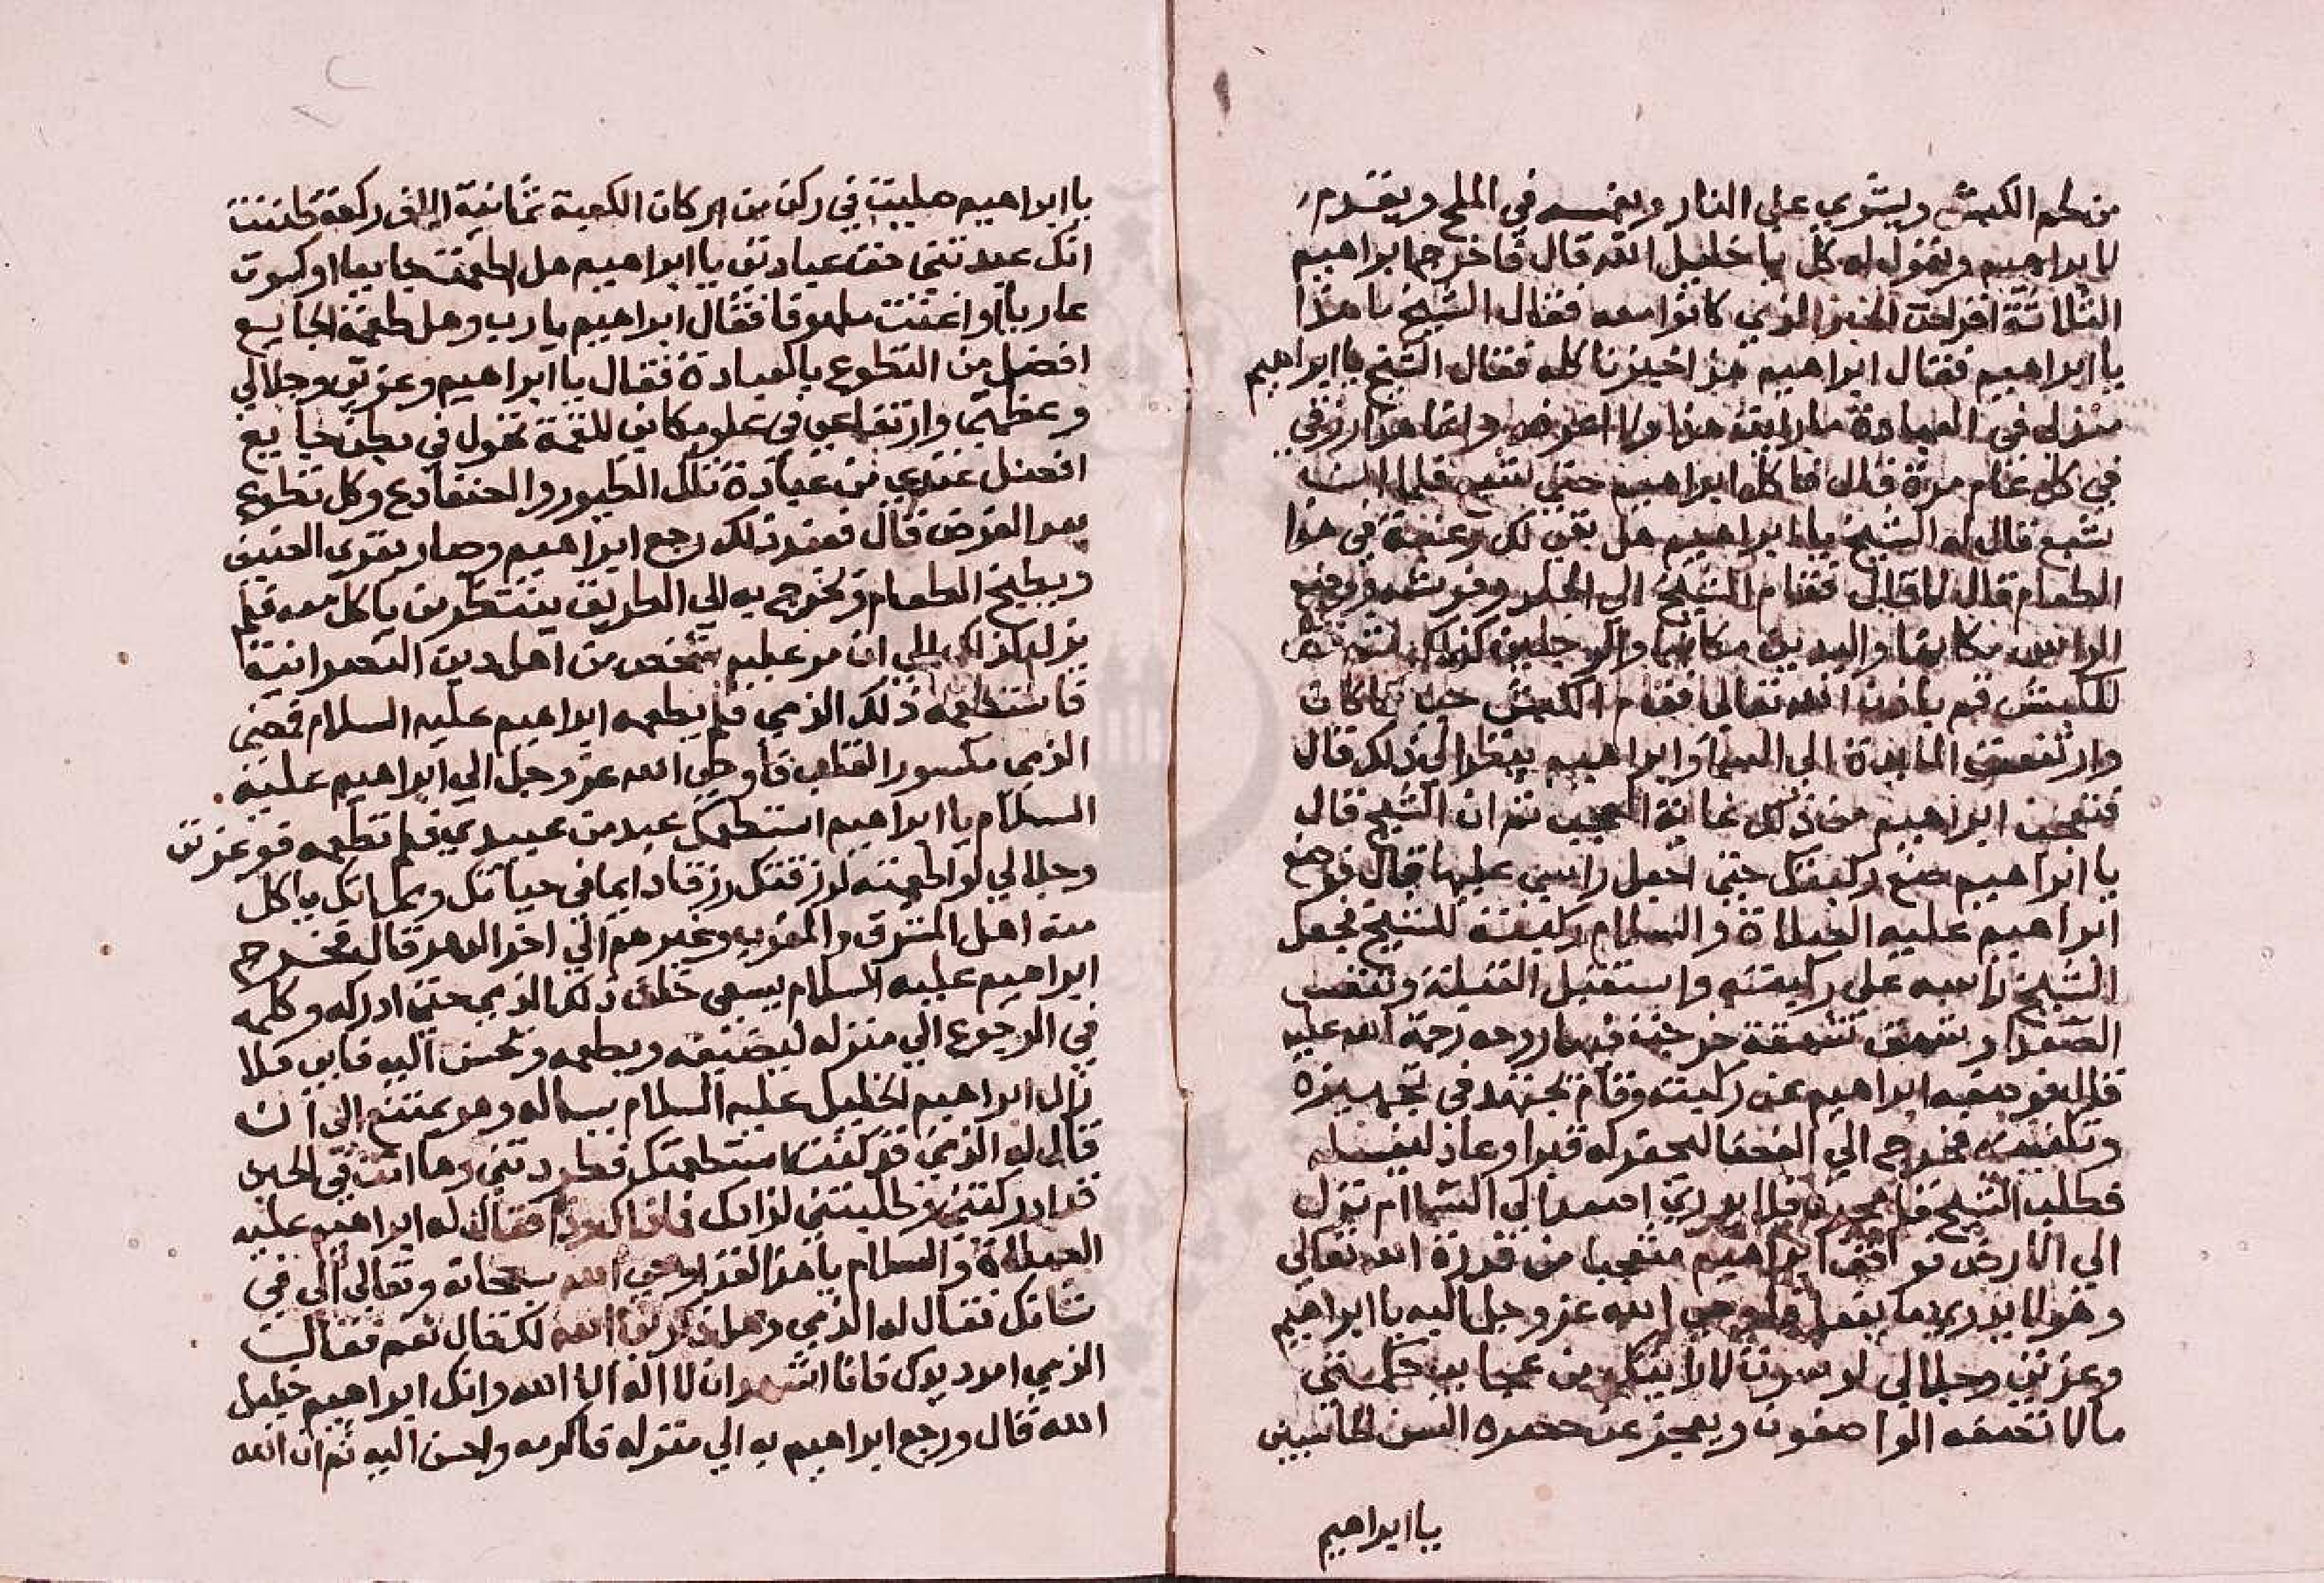 من لحم الكبش ويشوي علي النار ويغمسه في الملح ويقدم
لابراهيم ويقول له كل يا خليل الله قال فاخرج ابراهيم
الثلاثة اقراص الخبز الذي كانوا معه فقال الشيخ ما هذا
يا ابراهيم فقال ابراهيم هذا خبزنا كله فقال الشيخ يا ابراهيم
منذ لي في العبادة ما رايت هذا ولا اعرفه وانما هذا رزقي
في كل عام مرة قال فاكل ابراهيم حتي شبع فلما ان
شبع قال له الشيخ يا ابراهيم هل بقي لك رغبة في هذا
الطعام قال لا قال فقام الشيخ الي الجلد وفرشه ووضع
الراس مكانها واليدين مكانها والرجلين كذلك ثم
للكبش قم باذن الله تعالي فقام الكبش حيا كما كان
وارتفعت المايدة الي السما وابراهيم ينظر الي ذلك قال
فتعجب ابراهيم من ذلك غاية العجب ثم ان الشيخ قال
يا ابراهيم ضع ركبتك حتي اجعل راسي عليها قال فوضع
ابراهيم عليه الصلاة والسلام ركبته للشيخ فجعل
الشيخ راسه علي ركبته واستقبل القبلة وتنفس
الصعدا وشهق شهقة خرجت فيها روحه رحمة الله عليه
قال فوضعه ابراهيم عن ركبته وقام يجتهد في تجهيزه
وتكفينه فخرج الي الصحرا ليحفر له قبرا وعاد ليغسله
فطلب الشيخ فلم يجده فلا يدري اصعد الي السما ام نزل
الي الارض فوقف ابراهيم متعجبا من قدرة الله تعالي
وهو لا يدري ما يفعل فاوحي الله عز وجل اليه يا ابراهيم
وعزتي وجلالي لو من عجايب حكمتي
ما لا تصفه الواصفون ويعجز عن حصره السن الحاسبين
يا ابراهيم
يا ابراهيم صليت في ركن من اركان الكعبة ثمانية الاف ركعة ظننت
انك عبدتني حق عبادتي يا ابراهيم هل اطعمت جايعا او كسوت
عاريا او اغثت ملهوفا فقال ابراهيم يا رب وهل طعمة الجايع
افضل من التطوع بالعبادة فقال يا ابراهيم وعزتي وجلالي
وعظمتي وارتفاعي في علو مكاني للقمة تحول في بطن جايع
افضل عندي من عبادة تلك الطيور والضفادع وكل تطوع
بعد الفرض قال فعند ذلك رجع ابراهيم وصار يقري الضيف
ويطبخ الطعام ويخرج به الي الطريق ينتظر من ياكل معه فلم
يزل كذلك الي ان مر عليه شخص من اهل دين النصرانية
فاستطعمه ذلك الذمي فلم يطعمه ابراهيم عليه السلام فمضي
الذمي مكسور القلب فاوحي الله عز وجل الي ابراهيم عليه
السلام يا ابراهيم استطعمك عبد من عبيدي فلم تطعمه فوعزتي
وجلالي لو اطعمته لرزقتك رزقا دايما في حياتك ومماتك ياكل
منه اهل المشرق والمغرب وغيرهم الي اخر الدهر قال فخرج
ابراهيم عليه السلام يسعي خلف ذلك الذمي حتي ادركه وكلمه
في الرجوع الي منزله ليضيفه ويطعمه ويحسن اليه فابي فلا
زال ابراهيم الخليل عليه السلام يساله وهو يمتنع الي ان
قال له الذمي قد كنت استطعمتك فطردتني وها انت في الحين
قد ادركتني وطلبتني لذلك فقال له ابراهيم عليه
الصلاة والسلام يا هذا لقد اوحي الله سبحانه وتعالي الي في
شانك فقال له الذمي وهل ذكرني الله لك قال نعم فقال
الذمي امدد يدك فانا اشهد ان لا اله الا الله وانك ابراهيم خليل
الله قال ورجع ابراهيم به الي منزله فاكرمه واحسن اليه ثم ان الله